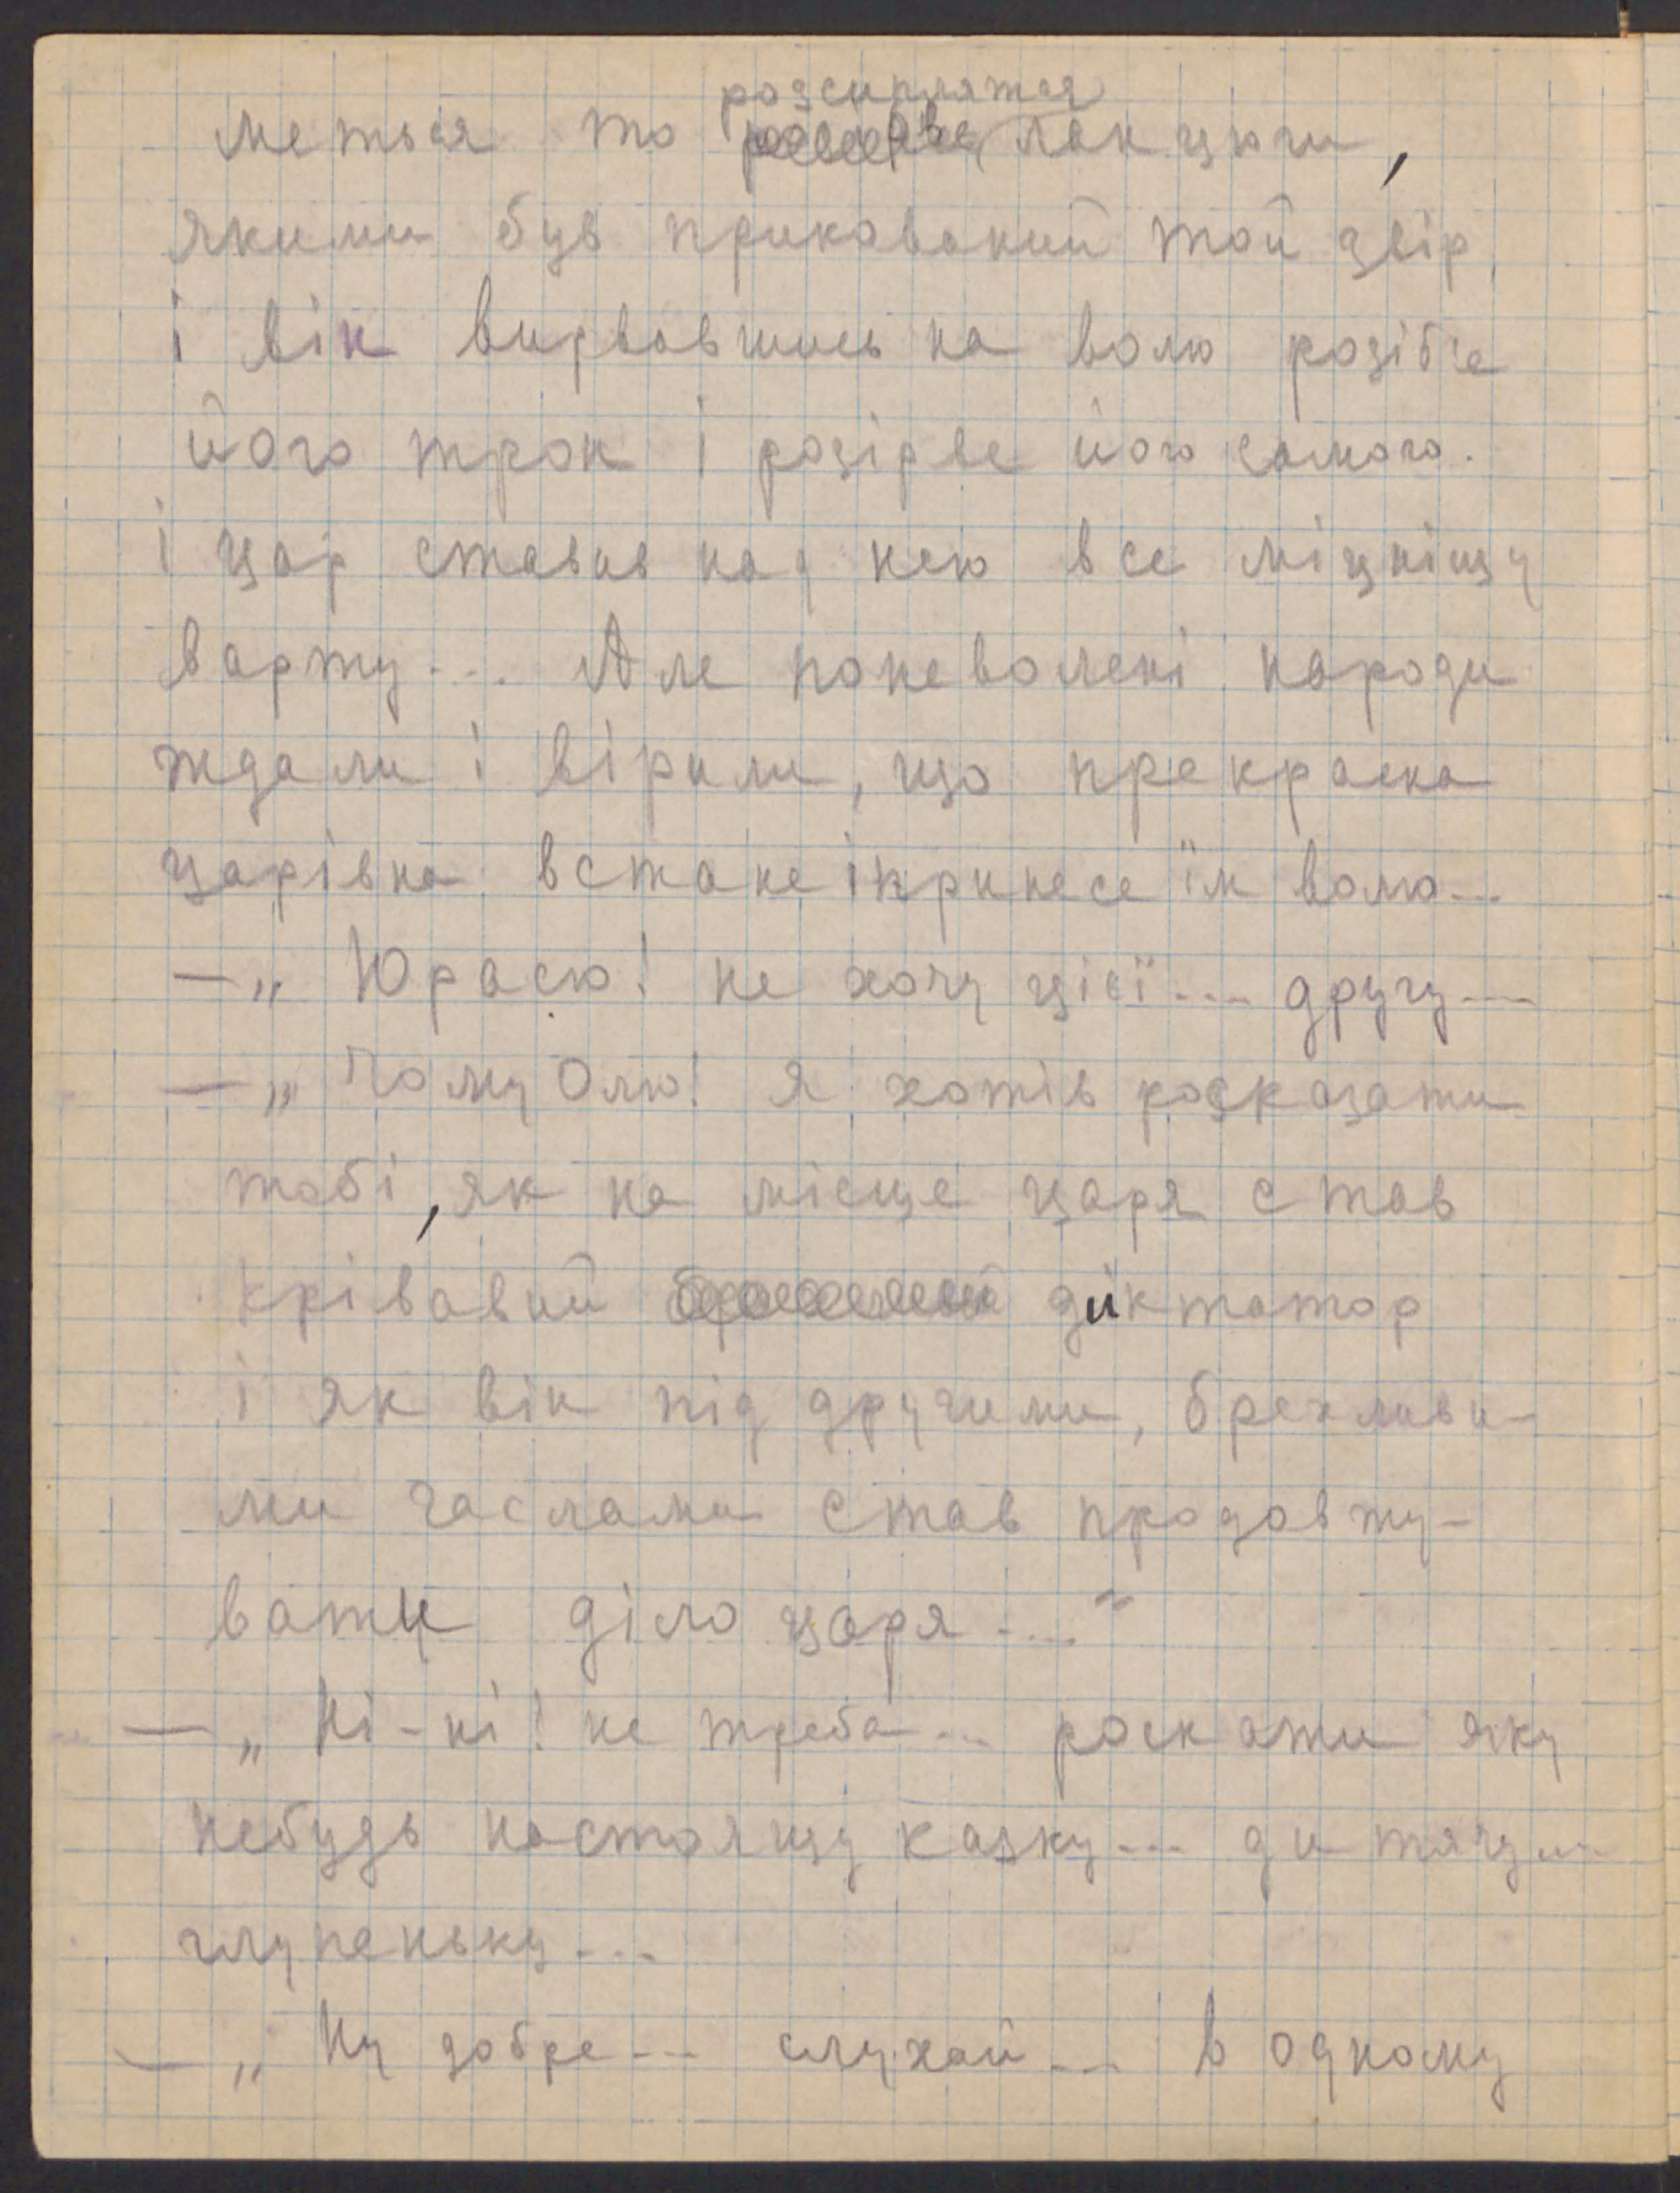 розсиплятся
меться то ланцюги,
якими був прикований той звір,
і він вирвавшись на волю розібʼе
його трон і розірве його самого.
і цар ставив над нею все міцнішу
варту... Але поневолені народи
ждали і вірили, що прекрасна
царівна встане і принесе їм волю...
— „Юрасю! не хочу цієї... другу...
— „Чому Олю! я хотів росказати
тобі, як на місце царя став
крівавий диктатор
і як він під другими, брехливи-
ми гаслами став продовжу-
вати діло царя...“
— „Ні-ні! не треба... роскажи яку
небудь настоящу казку... дитячу...
глупеньку...
— „Ну добре... слухай... в одному